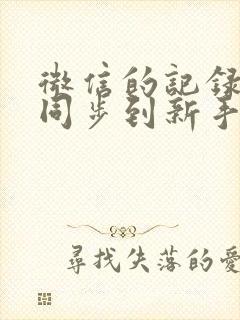 微信的記録
同步到新手
尋找失落的愛